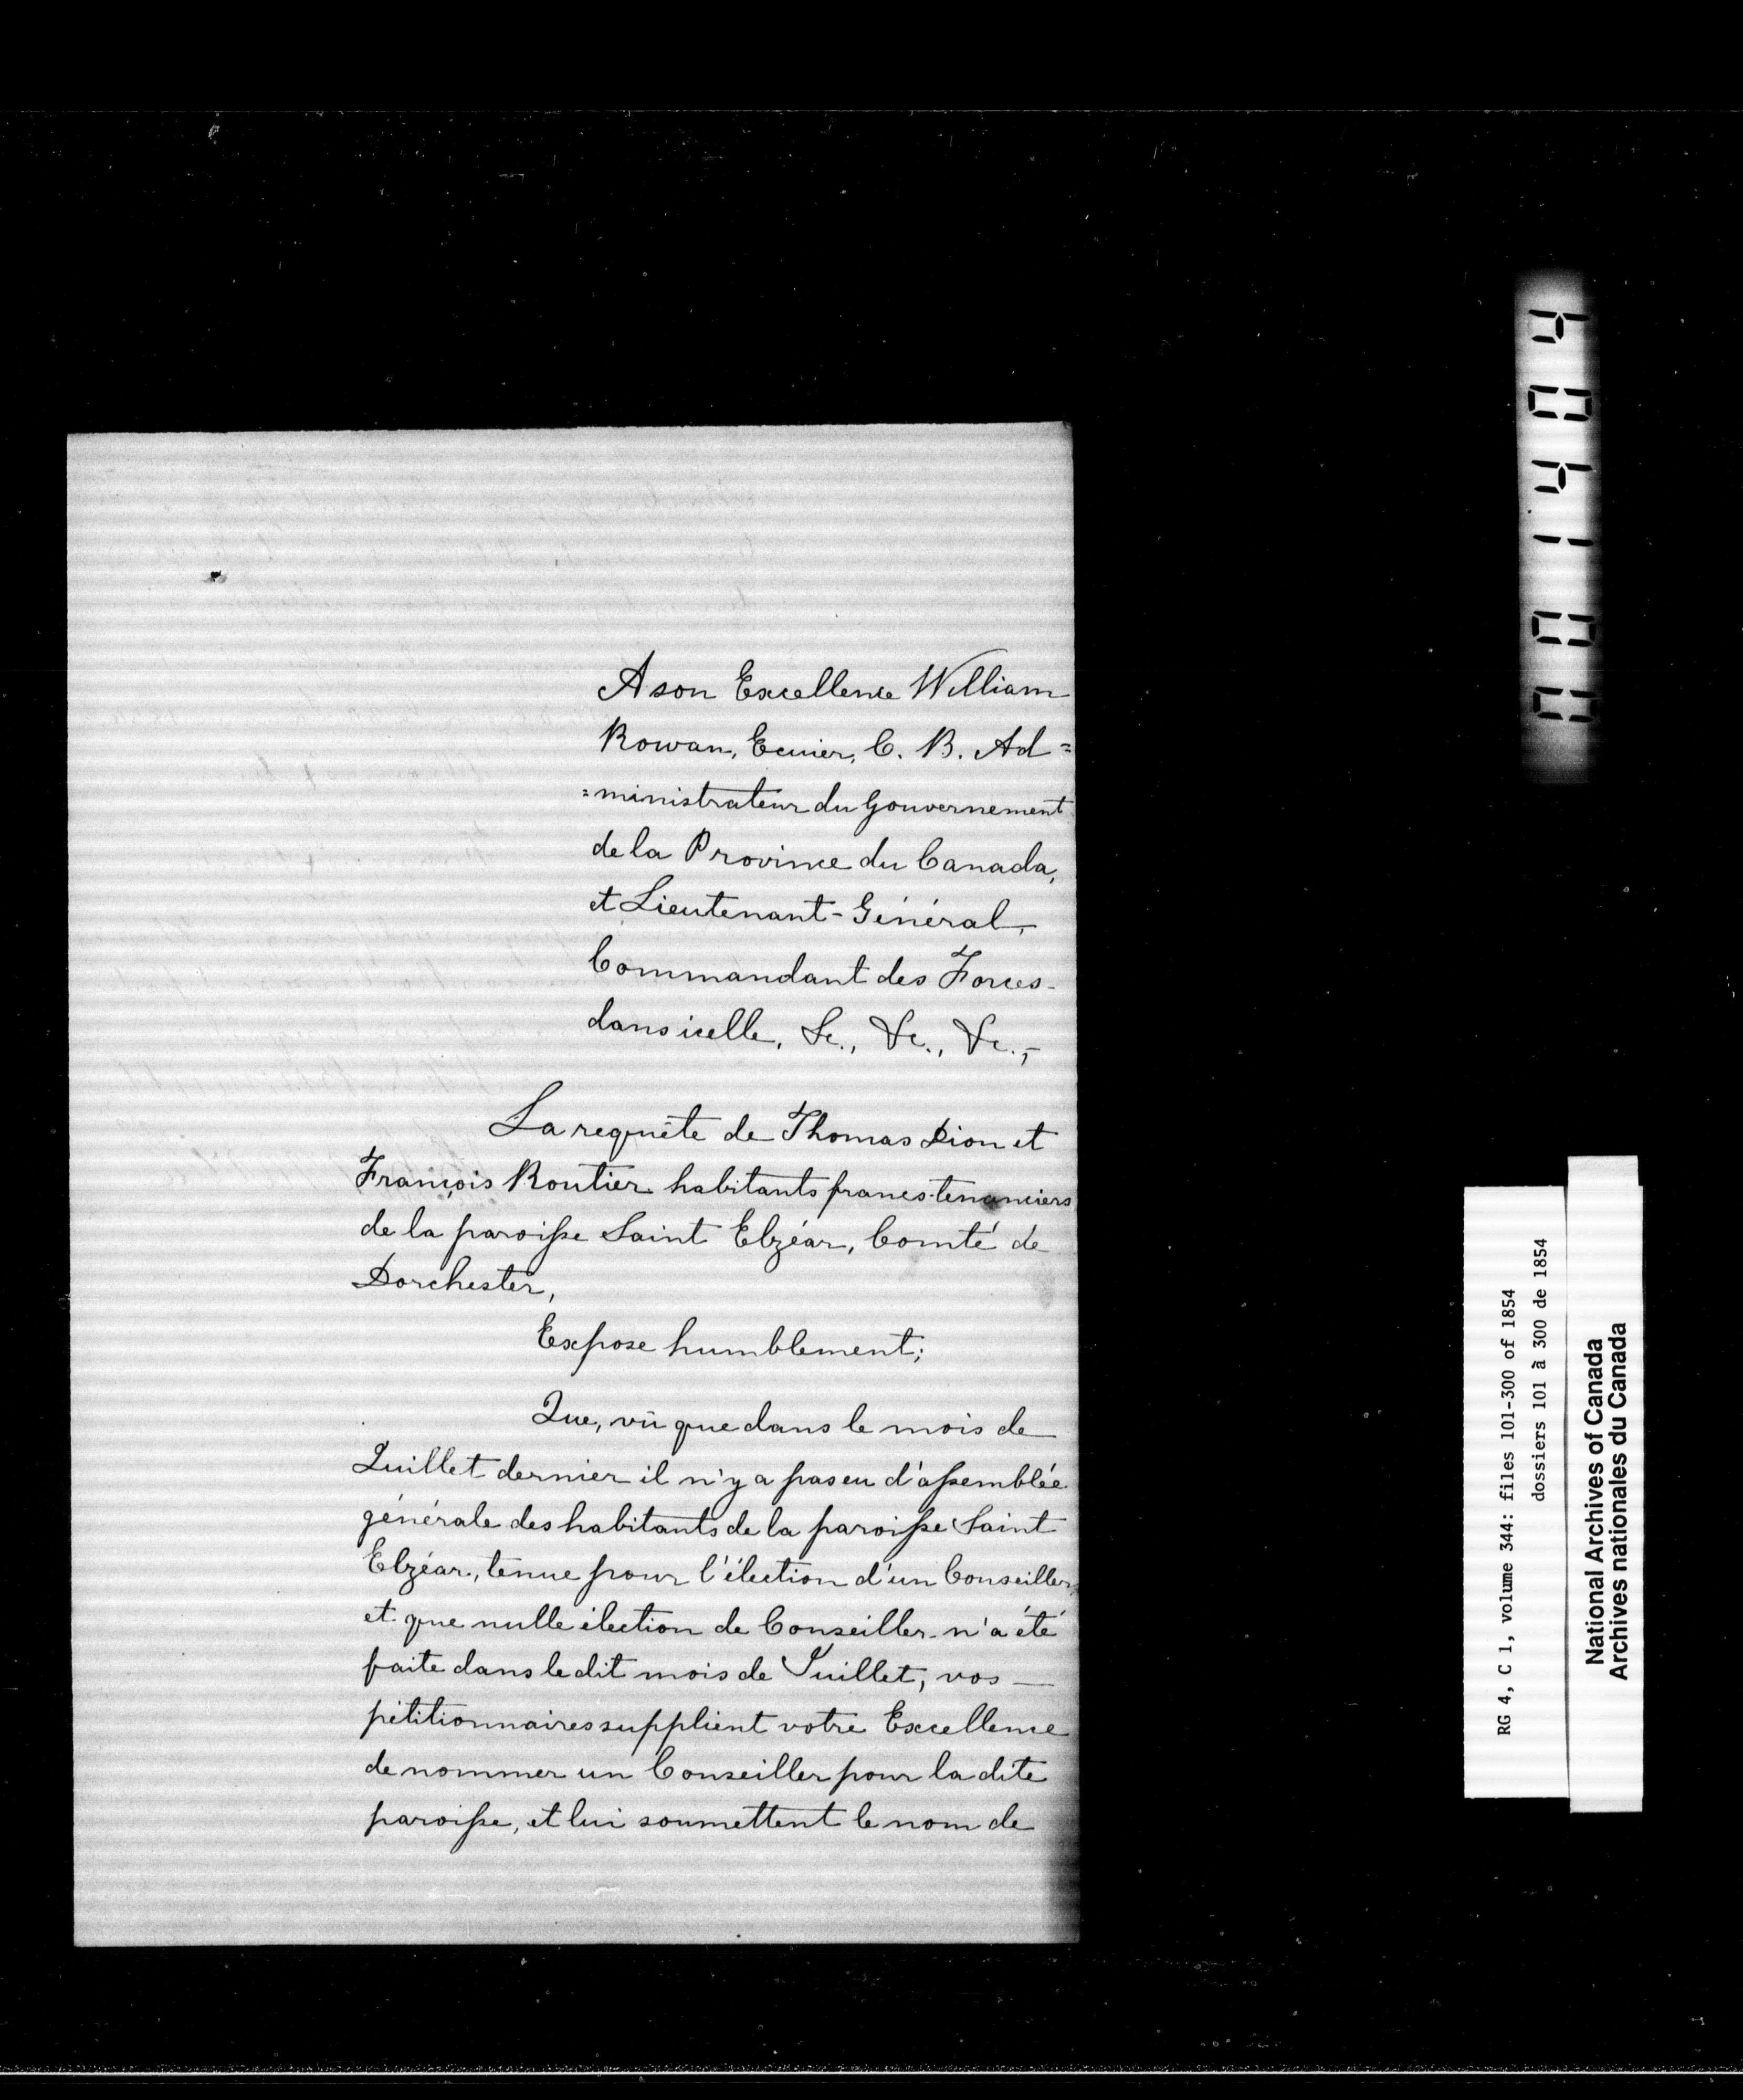 A son Excellence William
Rowan, Ecuier, C. B. Ad=
=ministrateur du Gouvernement
de la Province du Canada,
et Lieutenant-Général,
Commandant des Forces
dans icelle, &c., &c., &c.,
La requête de Thomas Dion et
François Routier habitants francs-tenanciers
de la paroisse Saint Elzéar, Comté de
Dorchester,
Expose humblement;
Que, vû que dans le mois de
Juillet dernier il n'y a pas eu d'assemblée
générale des habitants de la paroisse Saint
Elzéar, tenue pour l'élection d'un Conseiller,
et que nulle élection de Conseiller n'a été
faite dans le dit mois de Juillet, vos
pétitionnaires supplient votre Excellence
de nommer un Conseiller pour la dite
paroisse, et lui soumettent le nom de
RG 4, C 1, volume 344: files 101-300 of 1854
dossiers 101 à 300 de 1854
National Archives of Canada
Archives nationales du Canada